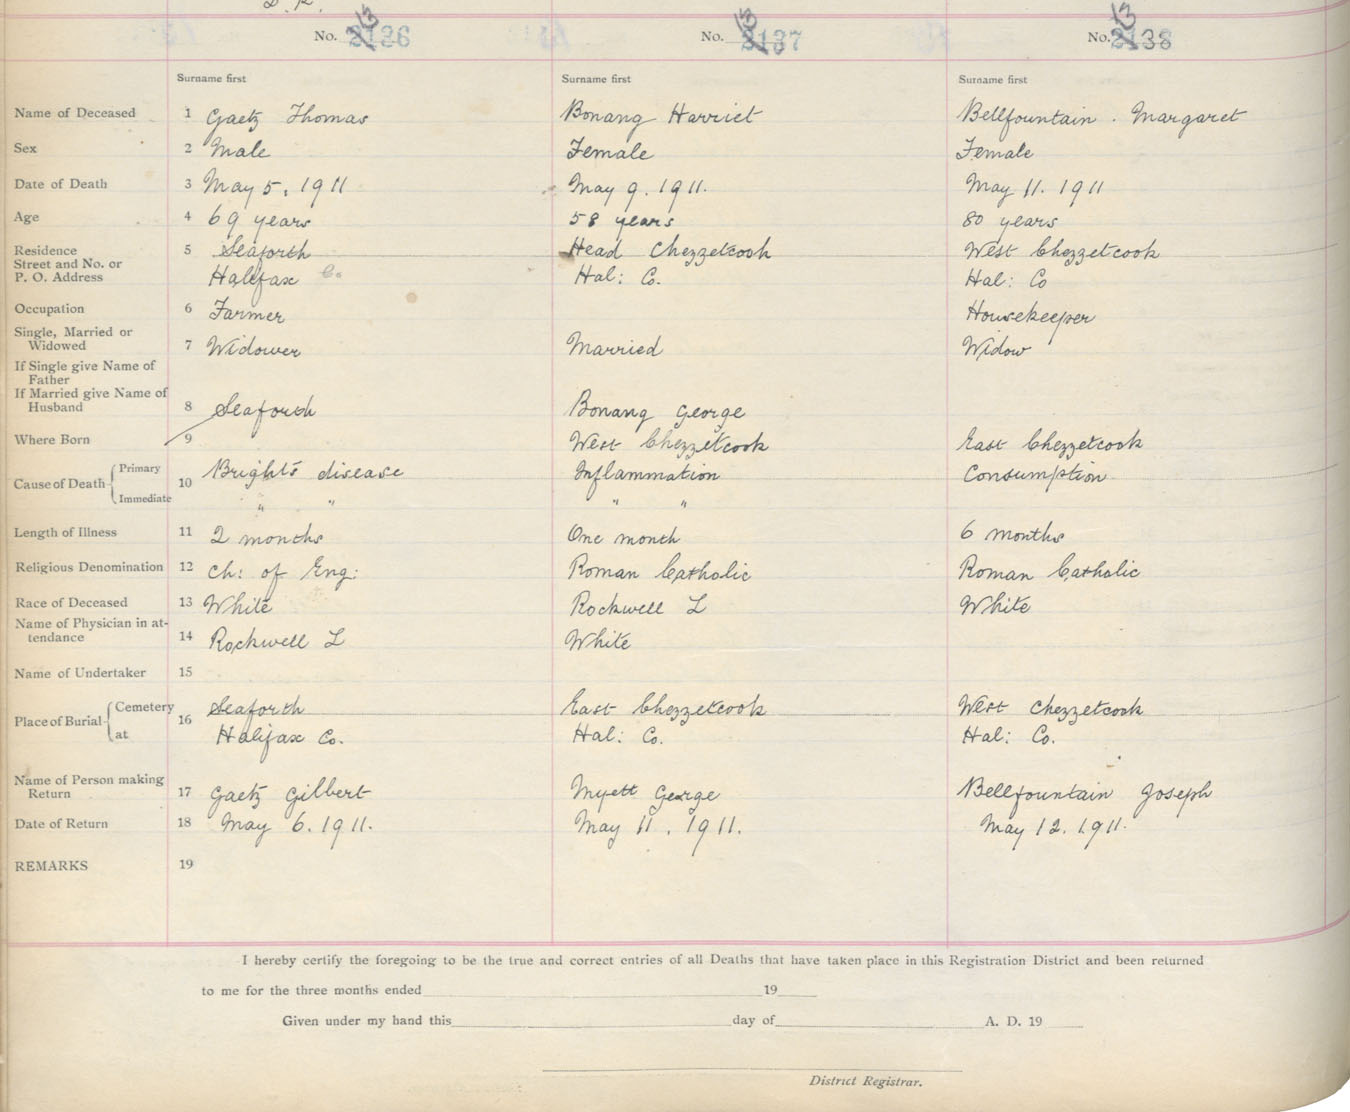 D. R.
No. 2136 No. 2137 No. 2138
Surname first Surname first Surname first
Name of Deceased 1 Gaetz Thomas Bonang Harriet Bellfountain . Margaret
Sex 2 Male Female Female
Date of Death 3 May 5, 1911 May 9. 1911. May 11. 1911
Age 4 69 years 58 years 80 years
Residence 5 Seaforth Head Chezzetcook West Chezzetcook
Street and No. or
P. O. Address Halifax Co. Hal: Co. Hal: Co
Occupation 6 Farmer Housekeeper
Single, Married or
Widowed 7 Widower Married Widow
If Single give Name of
Father
If Married give Name of
Husband 8 Seaforth Bonang George
Where Born 9 West Chezzetcook East Chezzetcook
Cause of Death Primary 10 Brights disease Inflammation Consumption
Immediate " " " "
Length of Illness 11 2 months One month 6 months
Religious Denomination 12 Ch: of Eng: Roman Catholic Roman Catholic
Race of Deceased 13 White Rockwell L White
Name of Physician in at-
tendance 14 Rockwell L White
Name of Undertaker 15
Place of Burial Cemetery 16 Seaforth East Chezzetcook West Chezzetcook
at Halifax Co. Hal: Co. Hal: Co.
Name of Person making
Return 17 Gaetz Gilbert Myett George Bellfountain Joseph
Date of Return 18 May 6. 1911. May 11, 1911. May 12. 1911.
REMARKS 19
I hereby certify the foregoing to be the true and correct entries of all Deaths that have taken place in this Registration District and been returned
to me for the three months ended 19
Given under my hand this day of A. D. 19
District Registrar.